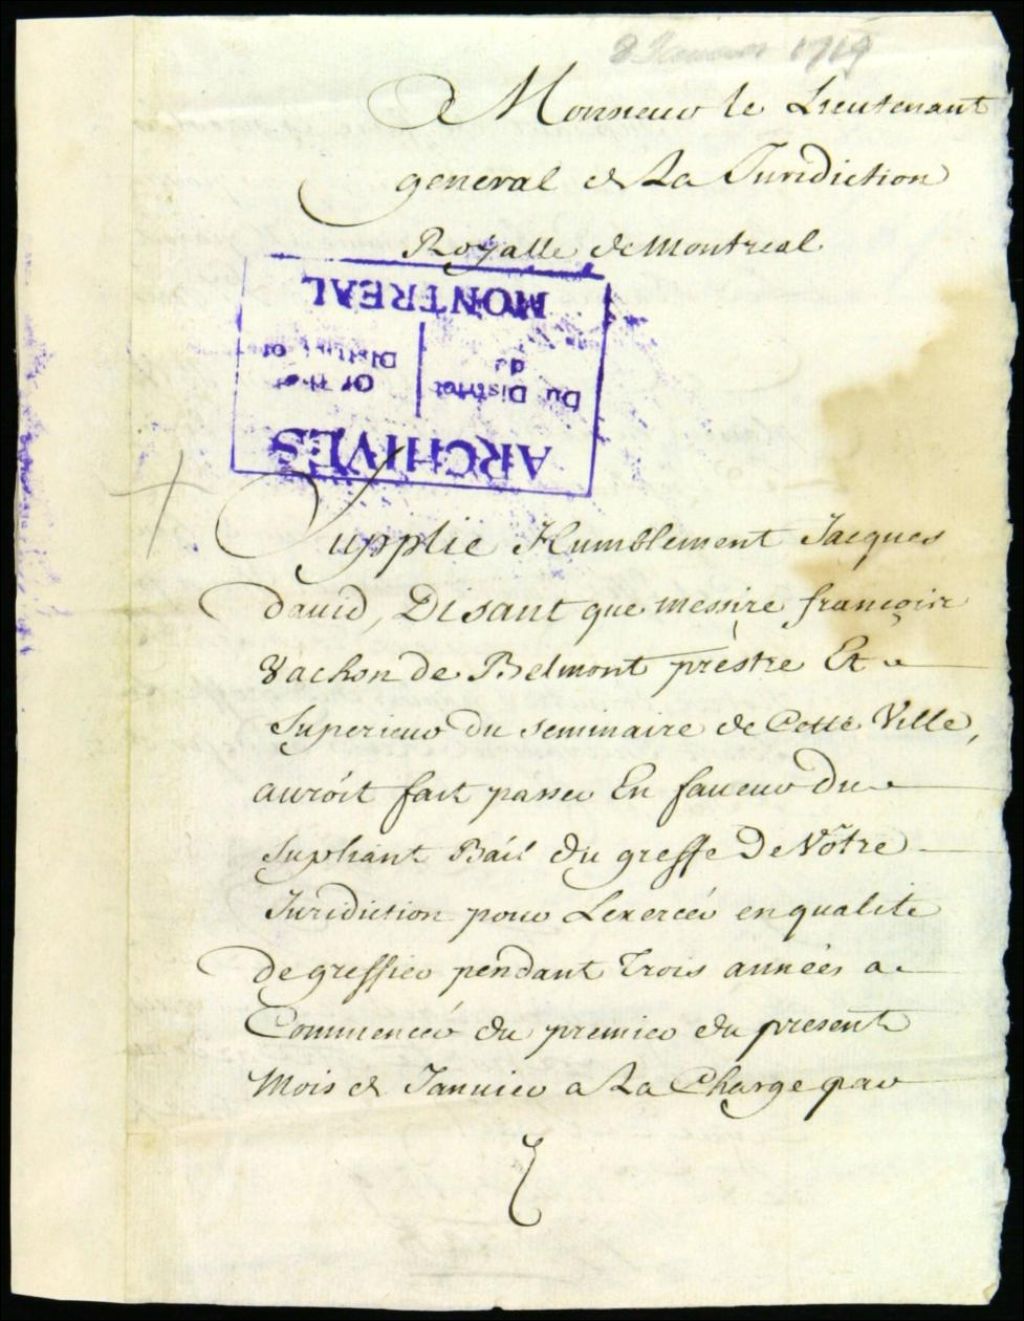 8 Janvier 1719
A Monsieur le Lieutenant
general de La Juridiction
Royalle de Montreal
ARCHIVES
Du District
du
Of the
District of
MONTREAL
Supplie Humblement Jacques
david, Disant que messire françois
Vachon de Belmont prestre Et
Superieur du seminaire de Cette Ville,
auroit fait passer En faueur du
Supliant Bail du greffe De Nôtre
Juridiction pour Lexercer en qualite
de greffier pendant Trois années a
Commencer du premier du present
Mois de Januier a La Charge par